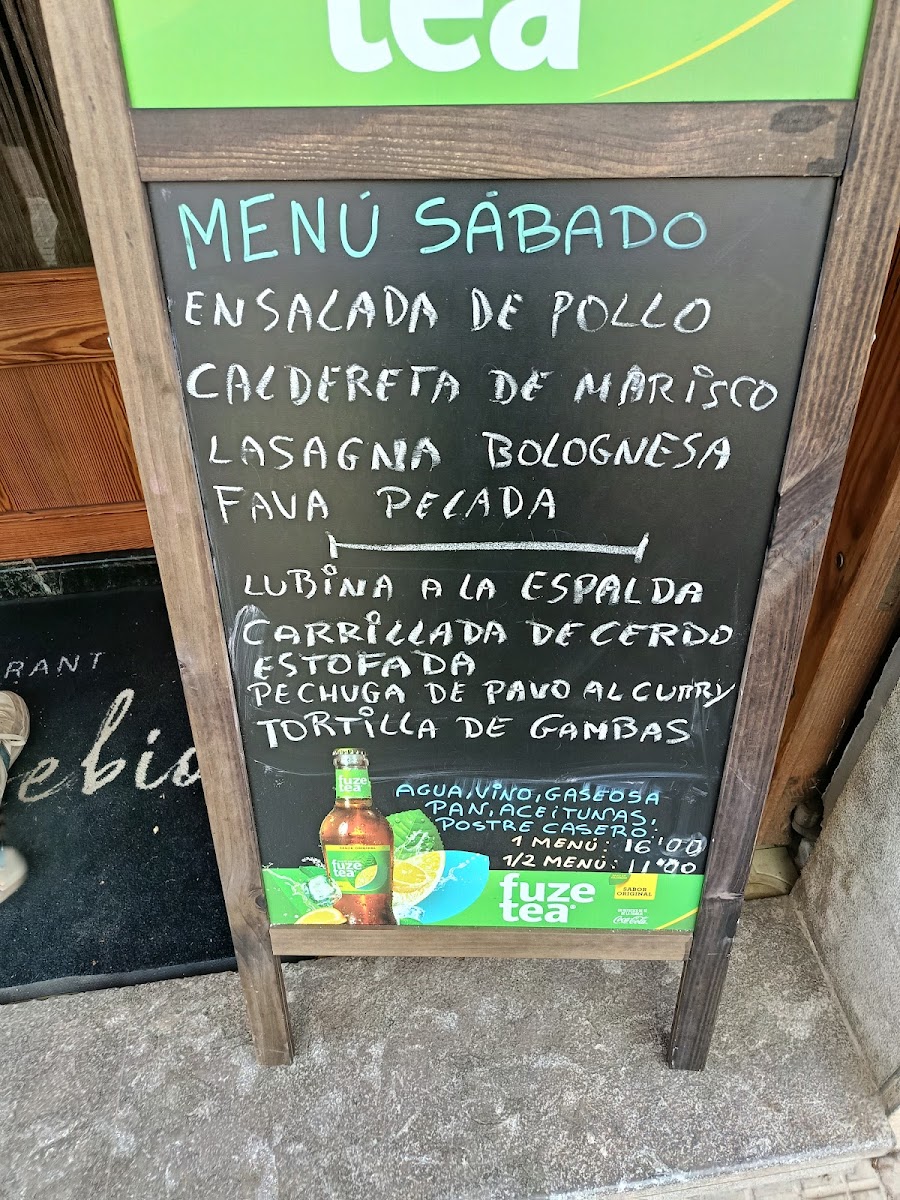 tea
MENÚ SÁBADO
ENSALADA DE POLLO
CALDERETA DE MARISCO
LASAGNA BOLOGNESA
FAVA PELADA
LUBINA A LA ESPALDA
CARRILLADA DE CERDO
ESTOFADA
PECHUGA DE PAVO AL CURRY
TORTILLA DE GAMBAS
AGUA, VINO, GASEOSA
PAN, ACEITUNAS,
POSTRE CASERO.
1 MENÚ: 16'00
1/2 MENÚ: 11'00
fuze
tea
fuze
tea
fuze
tea
SABOR
ORIGINAL
Coca-Cola
RANT
ebio